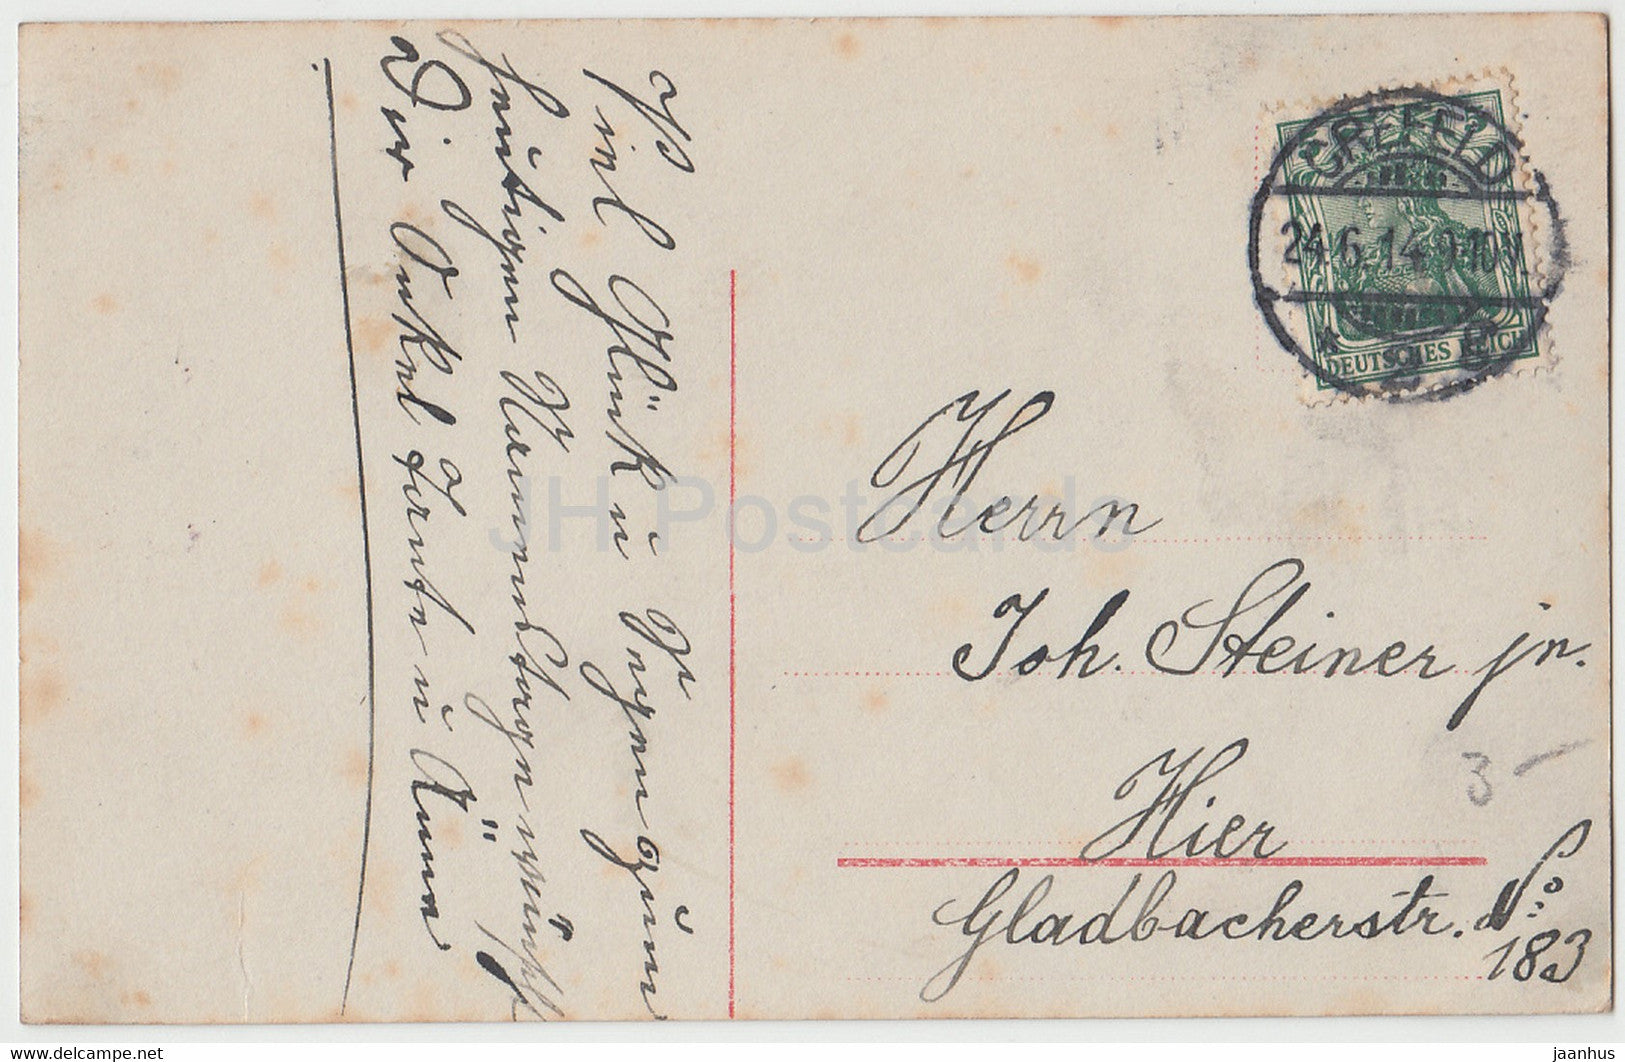 Viel Glück u Segen zum
heutigen Namenstage wünscht
Dir Onkel Tante u Änne
CREFELD
24.6.14.9-10V.
DEUTSCHES REICH
Herrn
Joh. Steiner jr.
Hier
Gladbacherstr. No
183
3 –
JH Postcards
jaanhus www.delcampe.net